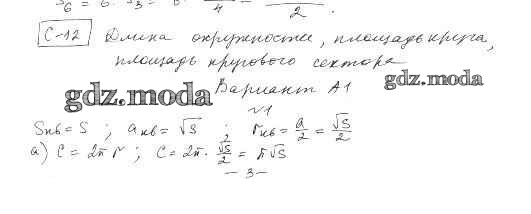 S₆ = 6 · S₃ = 6 · 4 2 .
С-12 Длина окружности, площадь круга,
площадь кругового сектора
gdz.moda Вариант А1 gdz.moda
√1
Sкв = S ; aкв = √S ; rкв = a/2 = √S/2
а) C = 2π r ; C = 2π · √S/2 = π√S
— 3 —